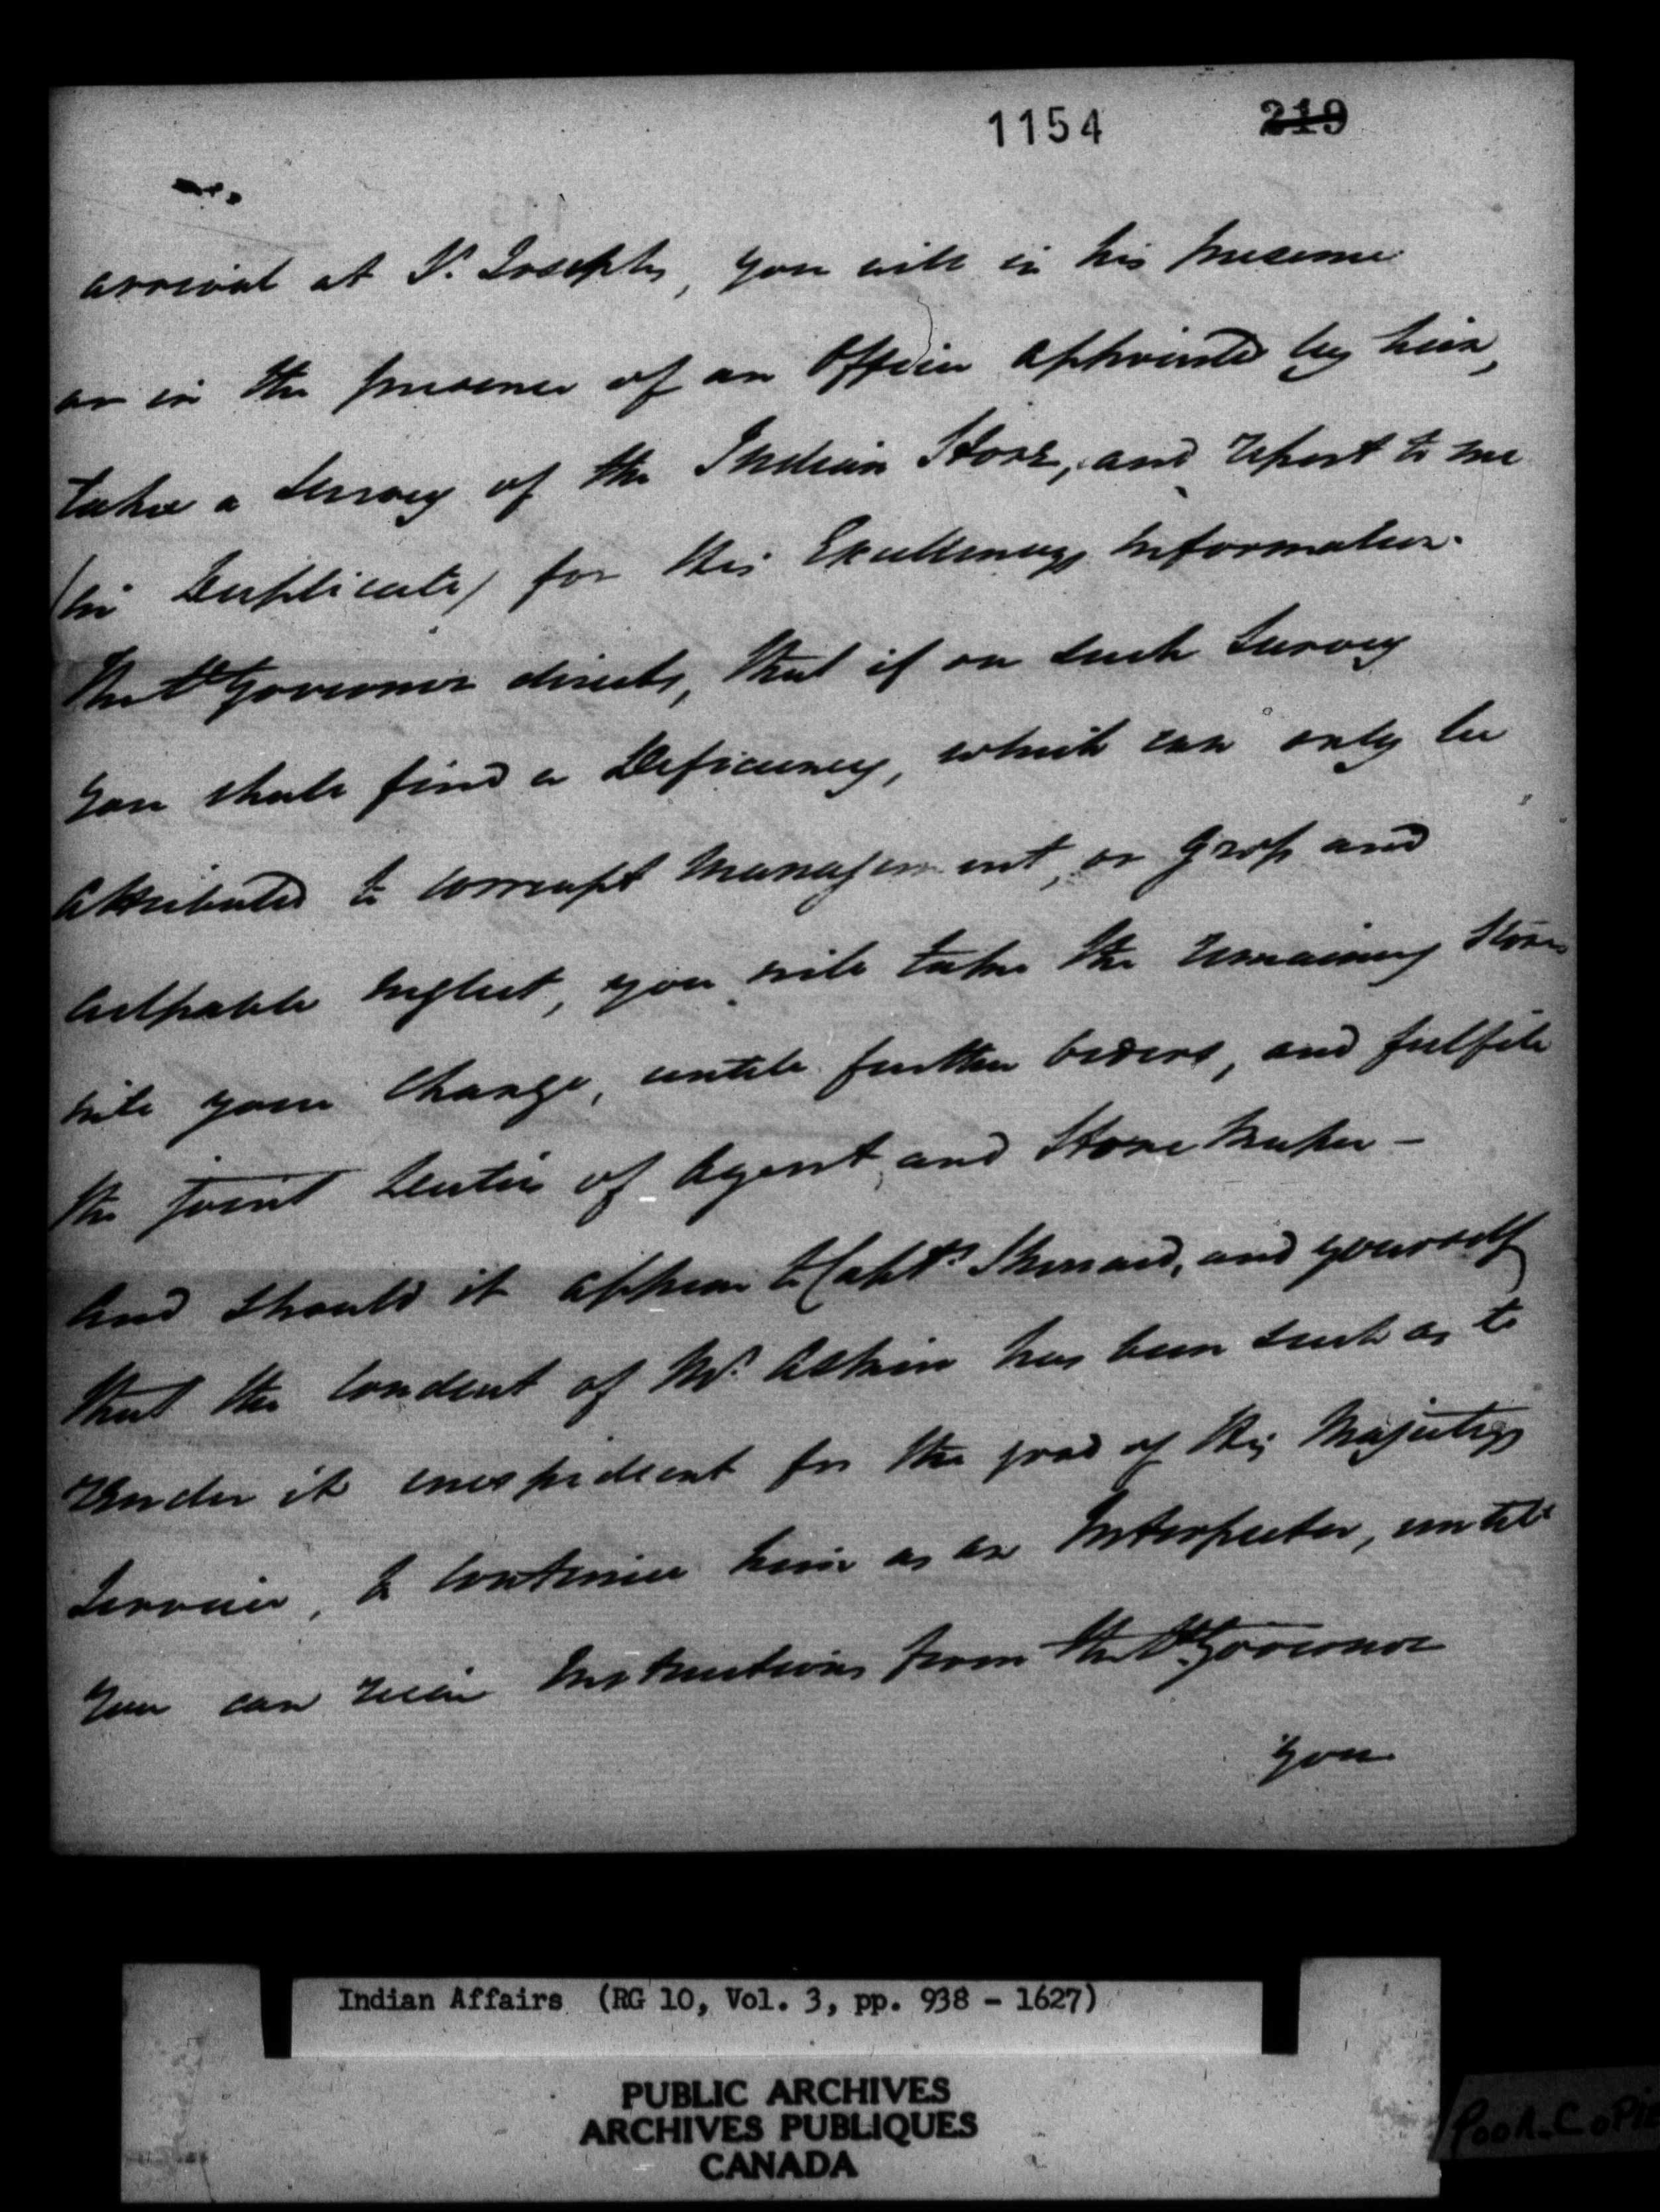 1154 219
arrival at St. Josephs, you will in his presence
or in the presence of an Officer appointed by him,
take a Survey of the Indian Store, and report to me
(in Duplicate) for His Excellencys Information.
The Lt Governor directs, that if on such Survey
you shall find a Deficiency, which can only be
attributed to corrupt Management, or gross and
culpable neglect, you will take the remaining Stores
into your Charge, until further orders, and fulfil
the joint Duties of Agent, and Store Keeper -
And should it appear to Capt. and yourself
that the Conduct of Mr. Askin has been such as to
render it inexpedient for the good of His Majestys
Service, to continue him as an Interpreter, until
you can receive Instructions from the Lt Governor
you
Indian Affairs (RG 10, Vol. 3, pp. 938 - 1627)
PUBLIC ARCHIVES
ARCHIVES PUBLIQUES
CANADA
Poor Copie